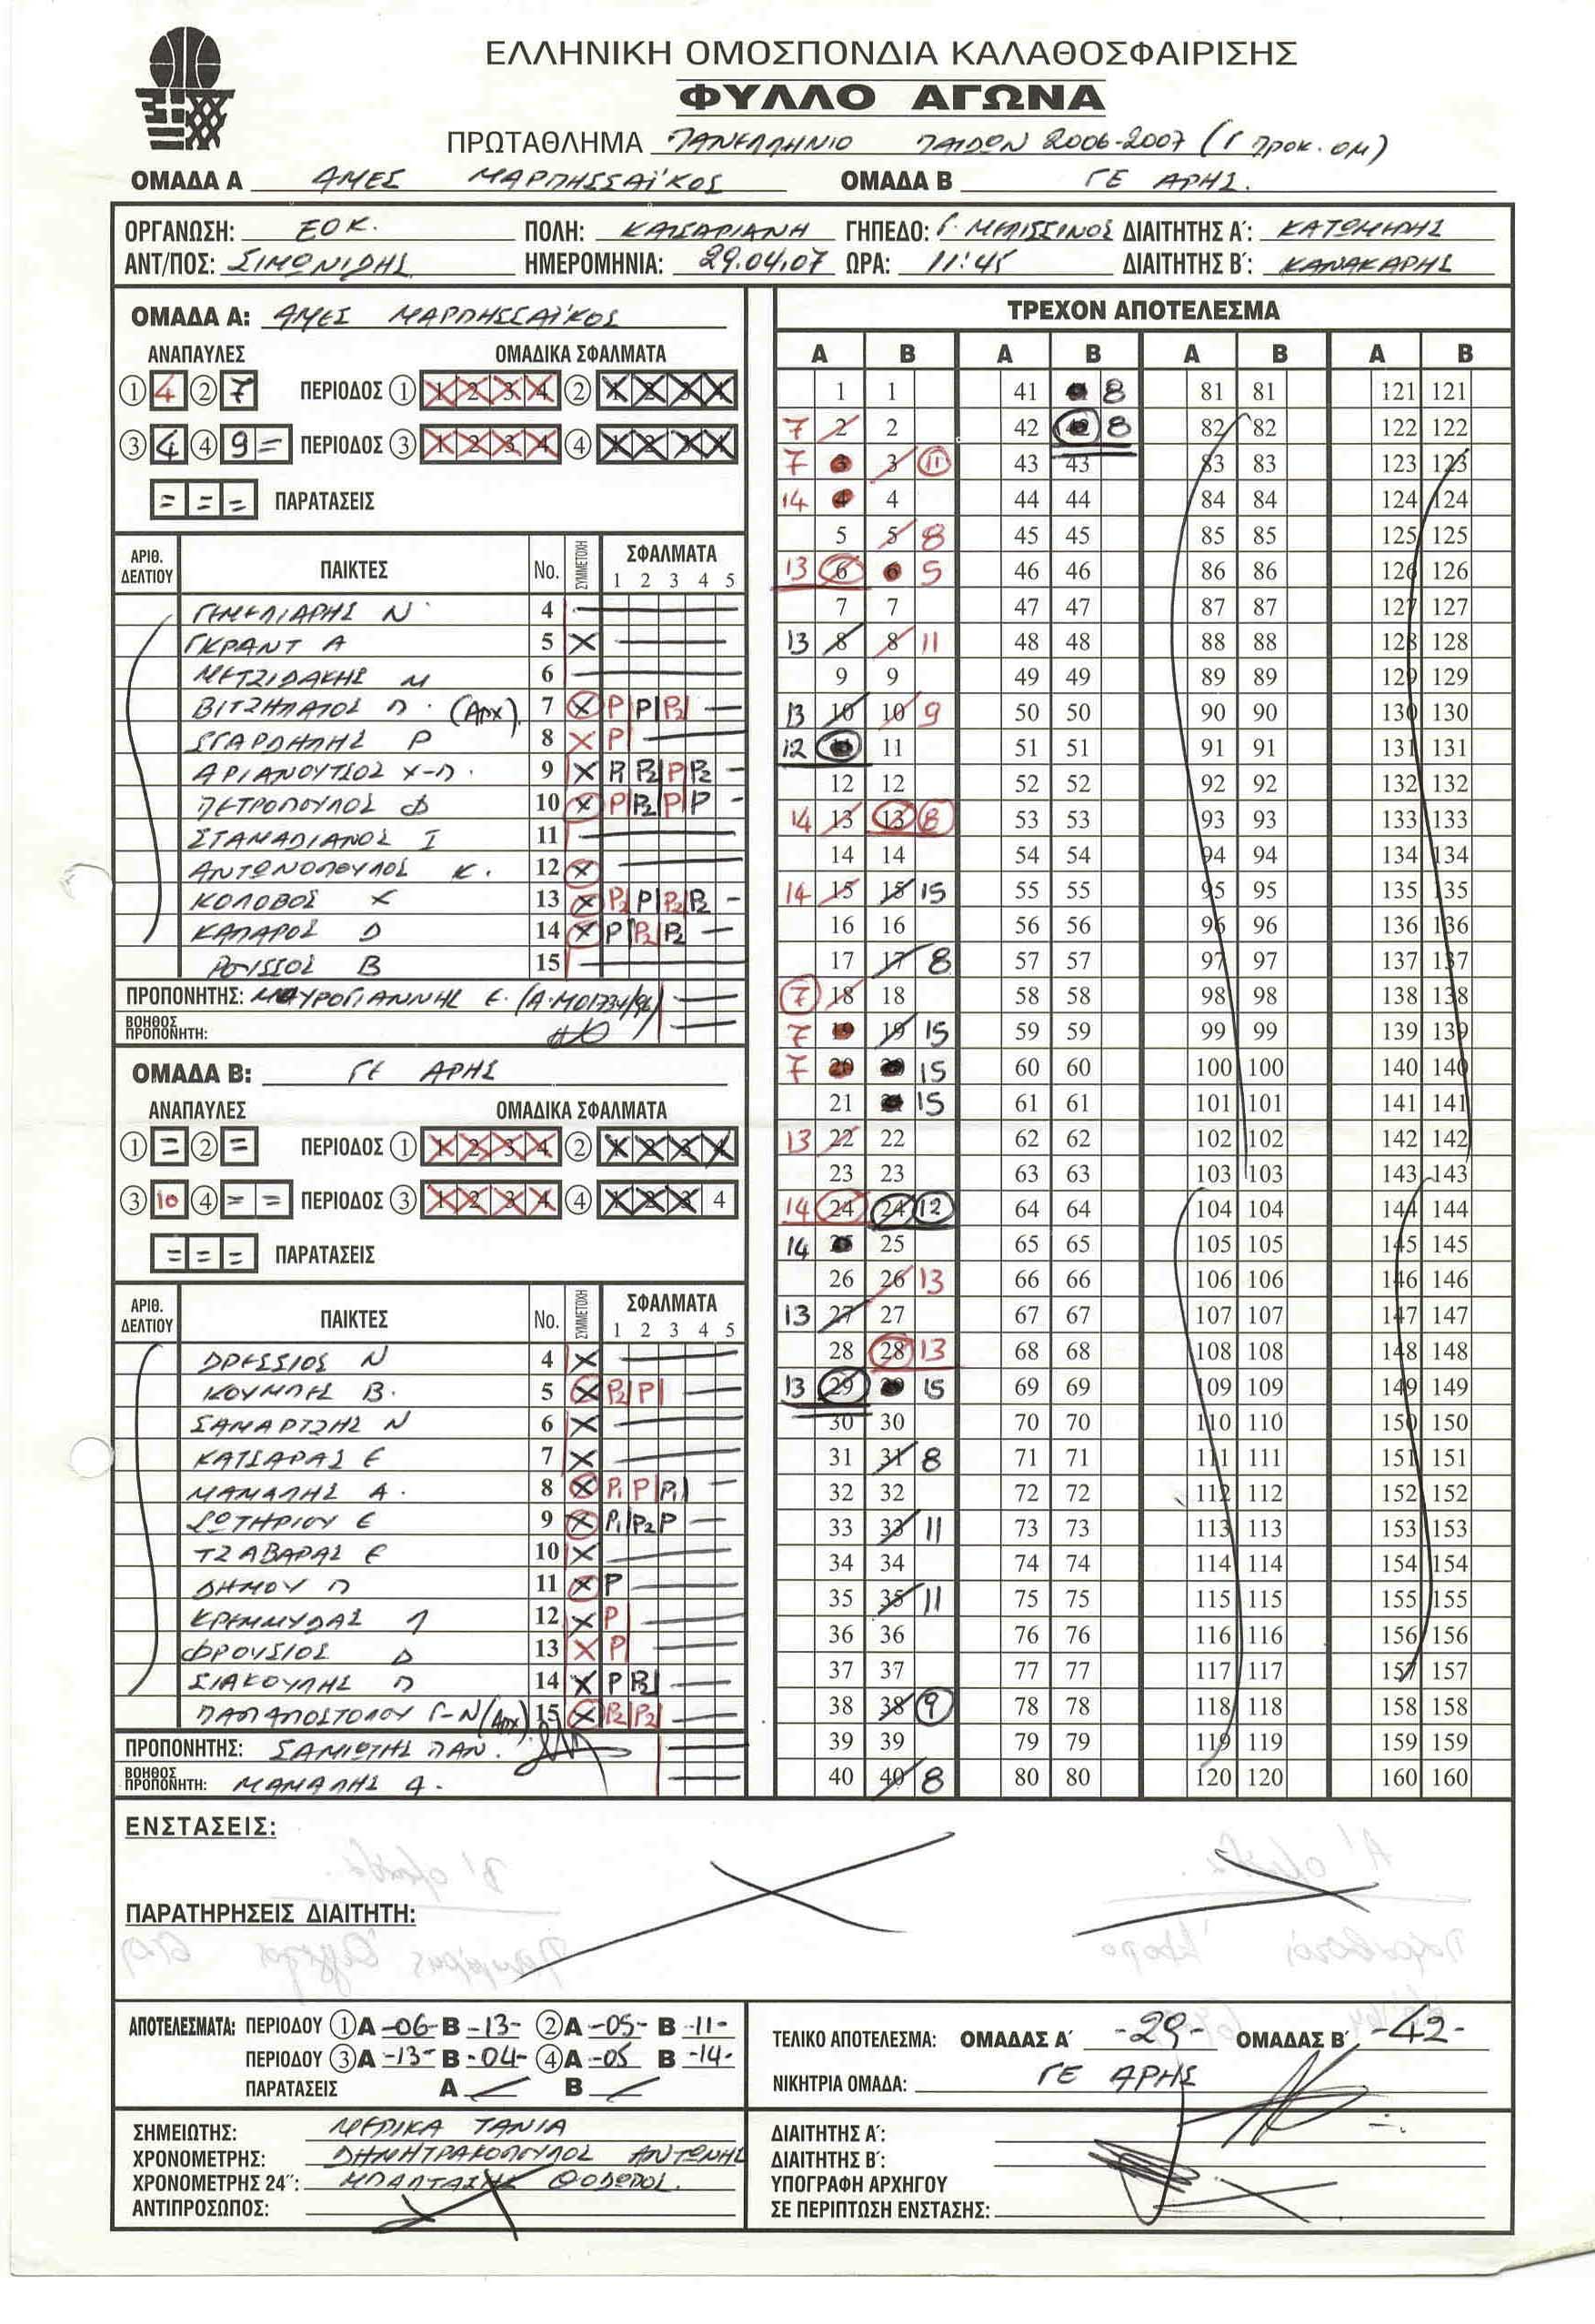 ΕΛΛΗΝΙΚΗ ΟΜΟΣΠΟΝΔΙΑ ΚΑΛΑΘΟΣΦΑΙΡΙΣΗΣ
ΦΥΛΛΟ ΑΓΩΝΑ
ΠΡΩΤΑΘΛΗΜΑ ΠΑΝΕΛΛΗΝΙΟ ΠΑΙΔΩΝ 2006-2007 (Γ ΠΡΟΚ. ΟΜ)
ΟΜΑΔΑ Α ΑΜΕΣ ΜΑΡΠΗΣΣΑΪΚΟΣ ΟΜΑΔΑ Β ΓΕ ΑΡΗΣ.
ΟΡΓΑΝΩΣΗ: ΕΟΚ. ΠΟΛΗ: ΚΑΙΣΑΡΙΑΝΗ ΓΗΠΕΔΟ: Γ. ΜΕΛΙΣΣΙΝΟΣ ΔΙΑΙΤΗΤΗΣ Α΄: ΚΑΤΩΜΕΡΗΣ
ΑΝΤ/ΠΟΣ: ΣΙΜΩΝΙΔΗΣ ΗΜΕΡΟΜΗΝΙΑ: 29.04.07 ΩΡΑ: 11:45 ΔΙΑΙΤΗΤΗΣ Β΄: ΚΑΝΑΚΑΡΗΣ
ΟΜΑΔΑ Α: ΑΜΕΣ ΜΑΡΠΗΣΣΑΪΚΟΣ
ΑΝΑΠΑΥΛΕΣ ΟΜΑΔΙΚΑ ΣΦΑΛΜΑΤΑ
1 4 2 7 ΠΕΡΙΟΔΟΣ 1 1 2 3 4 2 1 2 3 4
3 4 4 9 = ΠΕΡΙΟΔΟΣ 3 1 2 3 4 4 1 2 3 4
= = = ΠΑΡΑΤΑΣΕΙΣ
ΑΡΙΘ. ΔΕΛΤΙΟΥ ΠΑΙΚΤΕΣ No. ΣΥΜΜΕΤΟΧΗ ΣΦΑΛΜΑΤΑ
1 2 3 4 5
4
ΓΚΡΑΝΤ Α 5 X
ΜΕΤΖΙΔΑΚΗΣ Μ 6
ΒΙΤΖΗΛΑΙΟΣ Π. (Αρχ). 7 X P P P2
8 X P
ΑΡΙΑΝΟΥΤΣΟΣ Χ-Π. 9 X P P2 P P2
ΠΕΤΡΟΠΟΥΛΟΣ Φ 10 X P P2 P P
ΣΤΑΜΑΔΙΑΝΟΣ Ι 11
ΑΝΤΩΝΟΠΟΥΛΟΣ Κ. 12 X
ΚΟΛΟΒΟΣ Χ 13 X P2 P P2 P2
ΚΑΠΑΡΟΣ Δ 14 X P P2 P2
ΡΟΥΣΣΟΣ Β 15
ΠΡΟΠΟΝΗΤΗΣ: ΜΑΥΡΟΓΙΑΝΝΗΣ Ε. (Α.Μ01734/96)
ΒΟΗΘΟΣ ΠΡΟΠΟΝΗΤΗ:
ΟΜΑΔΑ Β: ΓΕ ΑΡΗΣ
ΑΝΑΠΑΥΛΕΣ ΟΜΑΔΙΚΑ ΣΦΑΛΜΑΤΑ
1 = 2 = ΠΕΡΙΟΔΟΣ 1 1 2 3 4 2 1 2 3 4
3 10 4 = = ΠΕΡΙΟΔΟΣ 3 1 2 3 4 4 1 2 3 4
= = = ΠΑΡΑΤΑΣΕΙΣ
ΑΡΙΘ. ΔΕΛΤΙΟΥ ΠΑΙΚΤΕΣ No. ΣΥΜΜΕΤΟΧΗ ΣΦΑΛΜΑΤΑ
1 2 3 4 5
ΔΡΕΣΣΙΟΣ Ν 4 X
ΚΟΥΜΠΗΣ Β. 5 X P2 P
ΣΑΜΑΡΤΖΗΣ Ν 6 X
ΚΑΤΣΑΡΑΣ Ε 7 X
ΜΑΜΑΛΗΣ Α. 8 X P1 P P1
ΣΩΤΗΡΙΟΥ Ε 9 X P1 P2 P
ΤΖΑΒΑΡΑΣ Ε 10 X
ΔΗΜΟΥ Π 11 X P
ΚΡΕΜΜΥΔΑΣ Λ 12 X P
ΦΡΟΥΣΙΟΣ Δ 13 X P
ΣΙΑΚΟΥΛΗΣ Π 14 X P P2
ΠΑΠΑΠΟΣΤΟΛΟΥ Γ-Ν (Αρχ) 15 X P2 P2
ΠΡΟΠΟΝΗΤΗΣ: ΣΑΜΙΩΤΗΣ ΠΑΝ.
ΒΟΗΘΟΣ ΠΡΟΠΟΝΗΤΗ: ΜΑΜΑΛΗΣ Δ.
ΤΡΕΧΟΝ ΑΠΟΤΕΛΕΣΜΑ
Α Β Α Β Α Β Α Β
1 1 41 41 8 81 81 121 121
7 2 2 42 42 8 82 82 122 122
7 3 3 11 43 43 83 83 123 123
14 4 4 44 44 84 84 124 124
5 5 8 45 45 85 85 125 125
13 6 6 5 46 46 86 86 126 126
7 7 47 47 87 87 127 127
13 8 8 11 48 48 88 88 128 128
9 9 49 49 89 89 129 129
13 10 10 9 50 50 90 90 130 130
12 11 11 51 51 91 91 131 131
12 12 52 52 92 92 132 132
14 13 13 8 53 53 93 93 133 133
14 14 54 54 94 94 134 134
14 15 15 15 55 55 95 95 135 135
16 16 56 56 96 96 136 136
17 17 8 57 57 97 97 137 137
7 18 18 58 58 98 98 138 138
7 19 19 15 59 59 99 99 139 139
7 20 20 15 60 60 100 100 140 140
21 21 15 61 61 101 101 141 141
13 22 22 62 62 102 102 142 142
23 23 63 63 103 103 143 143
14 24 24 12 64 64 104 104 144 144
14 25 25 65 65 105 105 145 145
26 26 13 66 66 106 106 146 146
13 27 27 67 67 107 107 147 147
28 28 13 68 68 108 108 148 148
13 29 29 15 69 69 109 109 149 149
30 30 70 70 110 110 150 150
31 31 8 71 71 111 111 151 151
32 32 72 72 112 112 152 152
33 33 11 73 73 113 113 153 153
34 34 74 74 114 114 154 154
35 35 11 75 75 115 115 155 155
36 36 76 76 116 116 156 156
37 37 77 77 117 117 157 157
38 38 9 78 78 118 118 158 158
39 39 79 79 119 119 159 159
40 40 8 80 80 120 120 160 160
ΕΝΣΤΑΣΕΙΣ:
ΠΑΡΑΤΗΡΗΣΕΙΣ ΔΙΑΙΤΗΤΗ:
ΑΠΟΤΕΛΕΣΜΑΤΑ: ΠΕΡΙΟΔΟΥ 1 Α -06- Β -13- 2 Α -05- Β -11-
ΠΕΡΙΟΔΟΥ 3 Α -13- Β -04- 4 Α -05 Β -14-
ΠΑΡΑΤΑΣΕΙΣ Α Β
ΤΕΛΙΚΟ ΑΠΟΤΕΛΕΣΜΑ: ΟΜΑΔΑΣ Α΄ -29- ΟΜΑΔΑΣ Β΄ -42-
ΝΙΚΗΤΡΙΑ ΟΜΑΔΑ: ΓΕ ΑΡΗΣ
ΣΗΜΕΙΩΤΗΣ: ΜΕΡΙΚΑ ΤΑΝΙΑ
ΧΡΟΝΟΜΕΤΡΗΣ: ΔΗΜΗΤΡΑΚΟΠΟΥΛΟΣ ΑΝΤΩΝΗΣ
ΧΡΟΝΟΜΕΤΡΗΣ 24΄΄:
ΑΝΤΙΠΡΟΣΩΠΟΣ:
ΔΙΑΙΤΗΤΗΣ Α΄:
ΔΙΑΙΤΗΤΗΣ Β΄:
ΥΠΟΓΡΑΦΗ ΑΡΧΗΓΟΥ
ΣΕ ΠΕΡΙΠΤΩΣΗ ΕΝΣΤΑΣΗΣ: